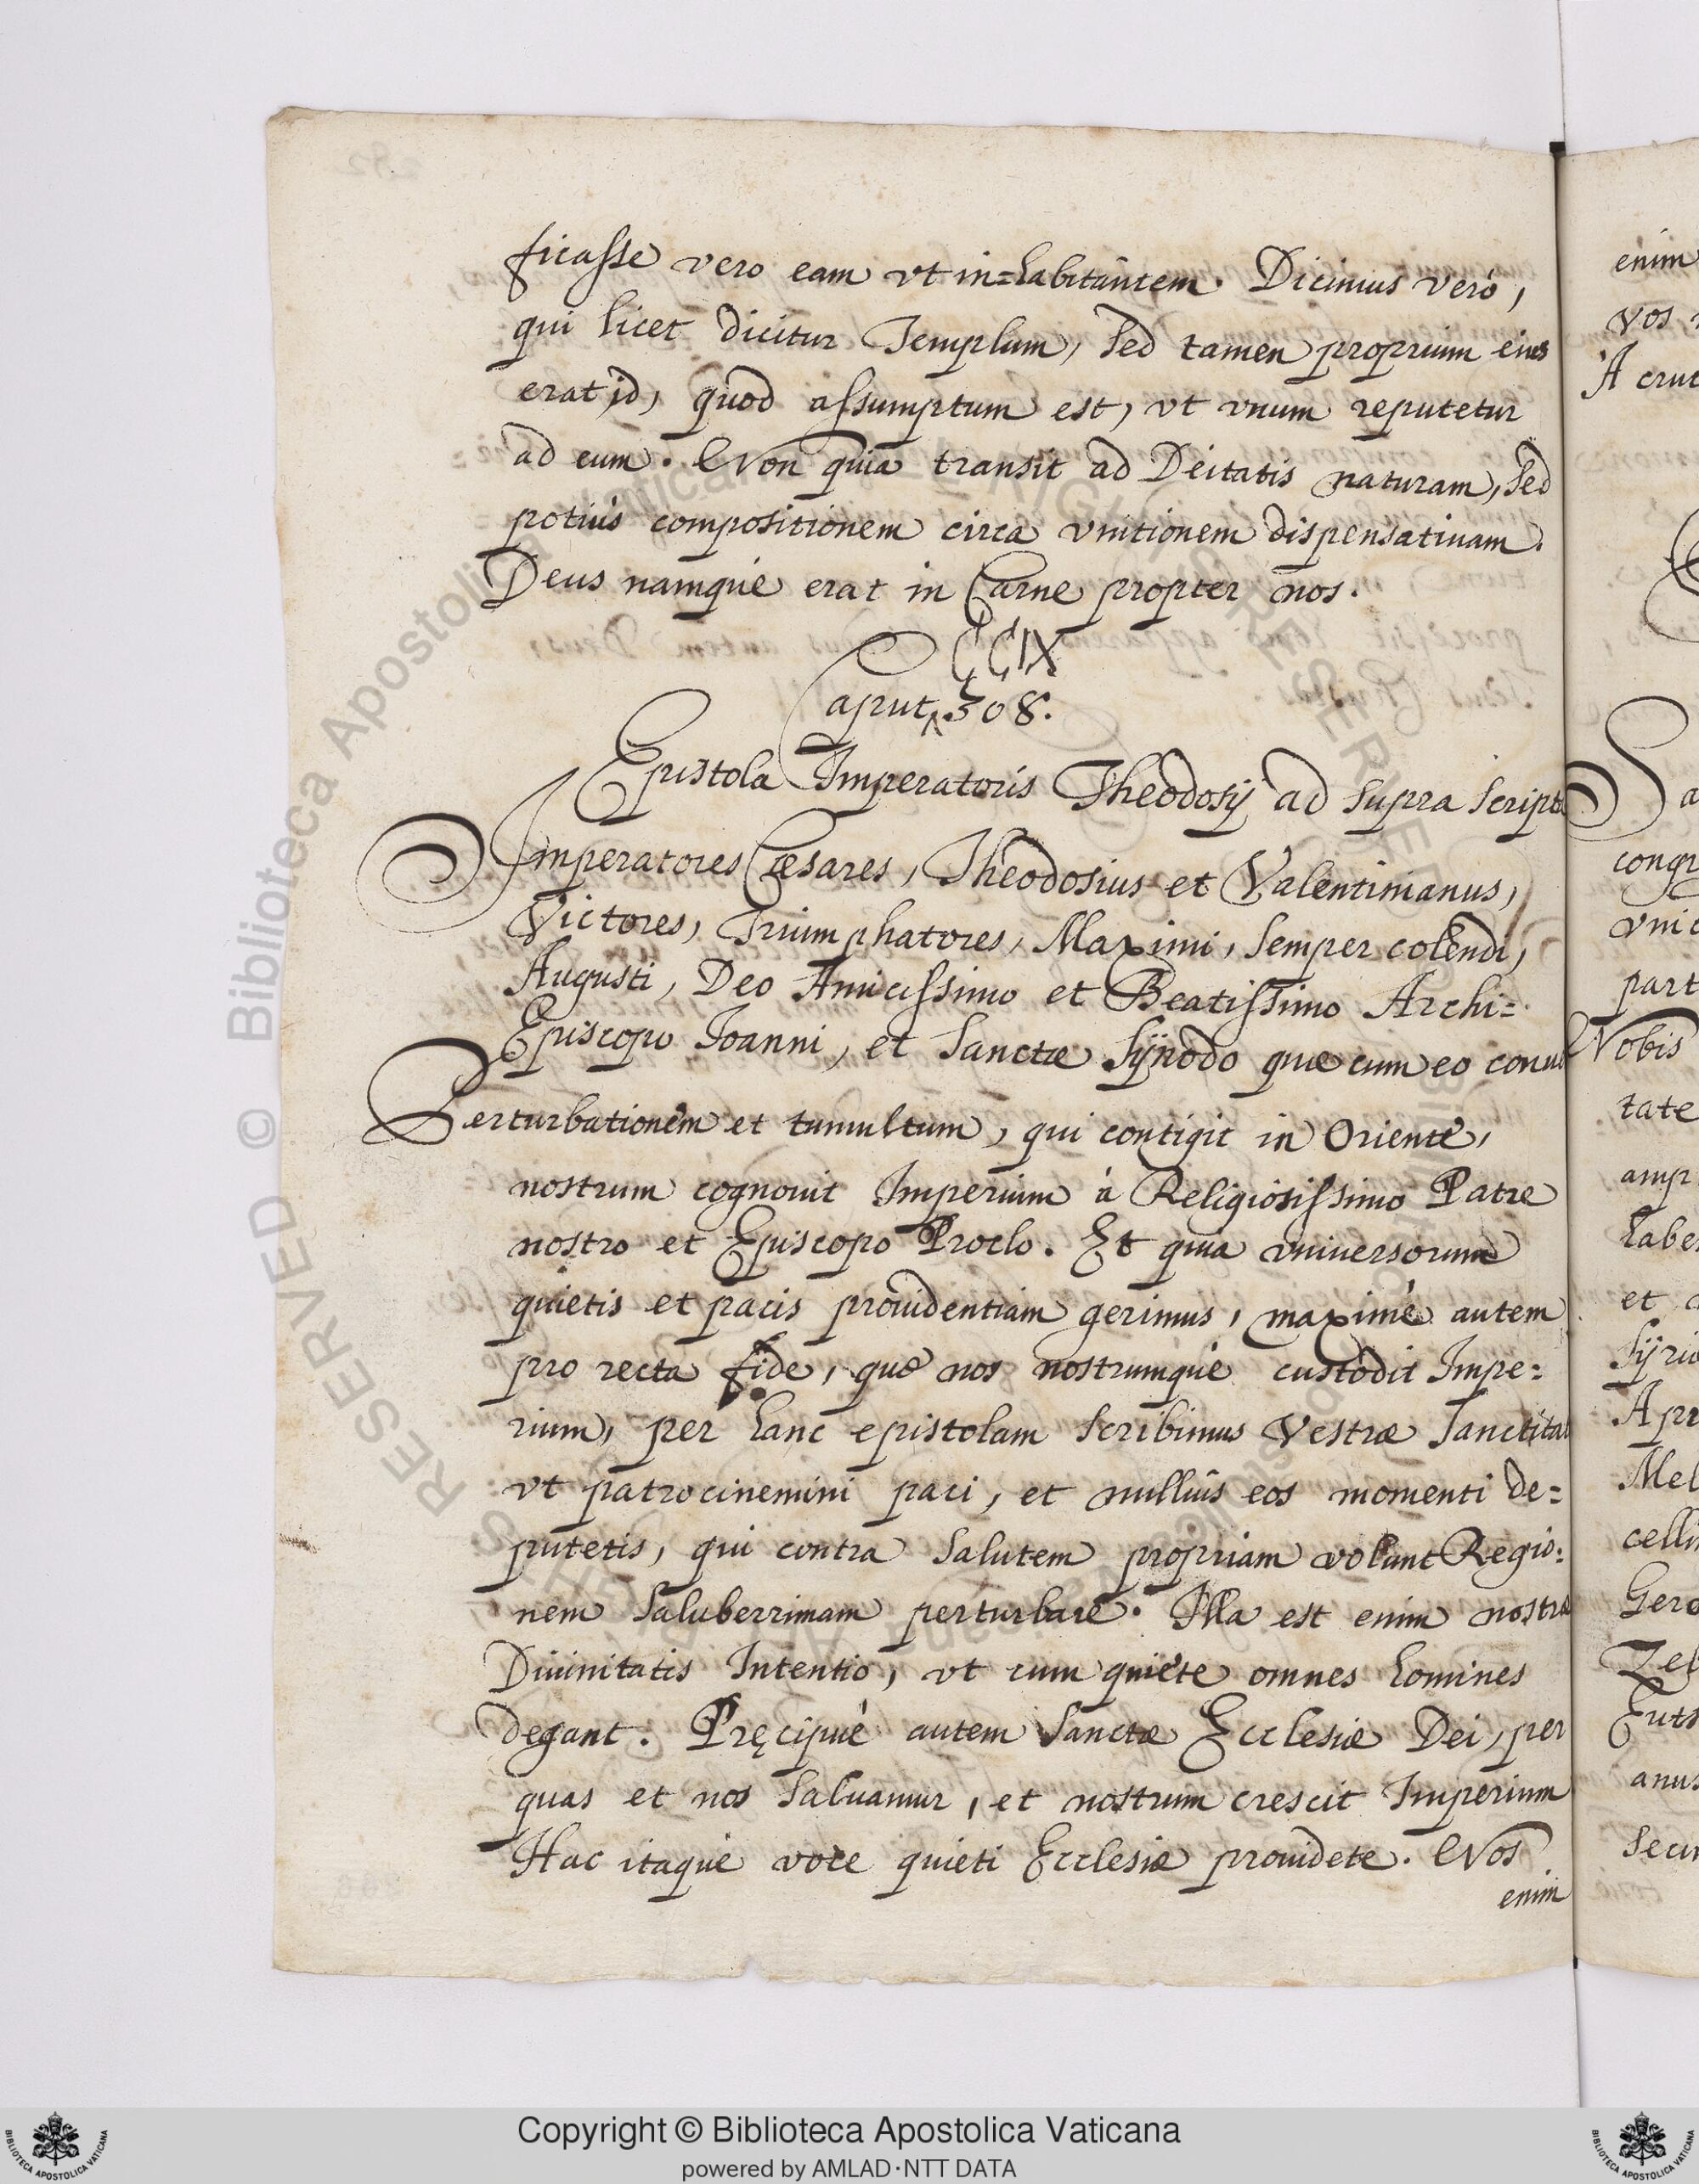 ficasse vero eam vt in=habitantem. Dicimus verò,
qui licet dicitur Templum, sed tamen proprium eius
erat id, quod assumptum est, vt vnum reputetur
ad eum. Non quia transit ad Deitatis naturam, sed
potiùs compositionem circa vnitionem dispensatiuam.
Deus namque erat in Carne propter nos.
CCIX
Caput 308.
Epistola Imperatoris Theodosij ad supra script
Imperatores Cæsares, Theodosius et Valentinianus,
Victores, Triumphatores, Maximi, semper colendi,
Augusti, Deo Amicissimo et Beatissimo Archi=
Episcopo Ioanni, et Sanctæ Sÿnodo quæ cum eo
Perturbationem et tumultum, qui contigit in Oriente,
nostrum cognouit Imperium à Religiosissimo Patre
nostro et Episcopo Proclo. Et quia vniuersorum
quietis et pacis prouidentiam gerimus, maximè autem
pro recta fide, quæ nos nostrumque custodit Impe=
rium, per hanc epistolam scribimus Vestræ Sanctitat
vt patrocinemini paci, et nullius eos momenti de=
putetis, qui contra salutem propriam volunt Regio=
nem saluberrimam perturbare. Illa est enim nostra
Diuinitatis Intentio, vt cum quiete omnes homines
degant. Pręcipuè autem Sanctæ Ecclesiæ Dei, per
quas et nos saluamur, et nostrum crescit Imperium
Hac itaque voce quieti Ecclesiæ prouidete. Nos
enim
enim
vos
A cruc
Sa
congr
vnic
part
Nobis
tate
amp
habe
et
Sÿria
Apr
Mel
celli
Gero
Zeb
Euts
anus
secu
© Biblioteca Apostolica Vaticana
Copyright © Biblioteca Apostolica Vaticana
powered by AMLAD·NTT DATA
BIBLIOTECA APOSTOLICA VATICANA
BIBLIOTECA APOSTOLICA VATICANA